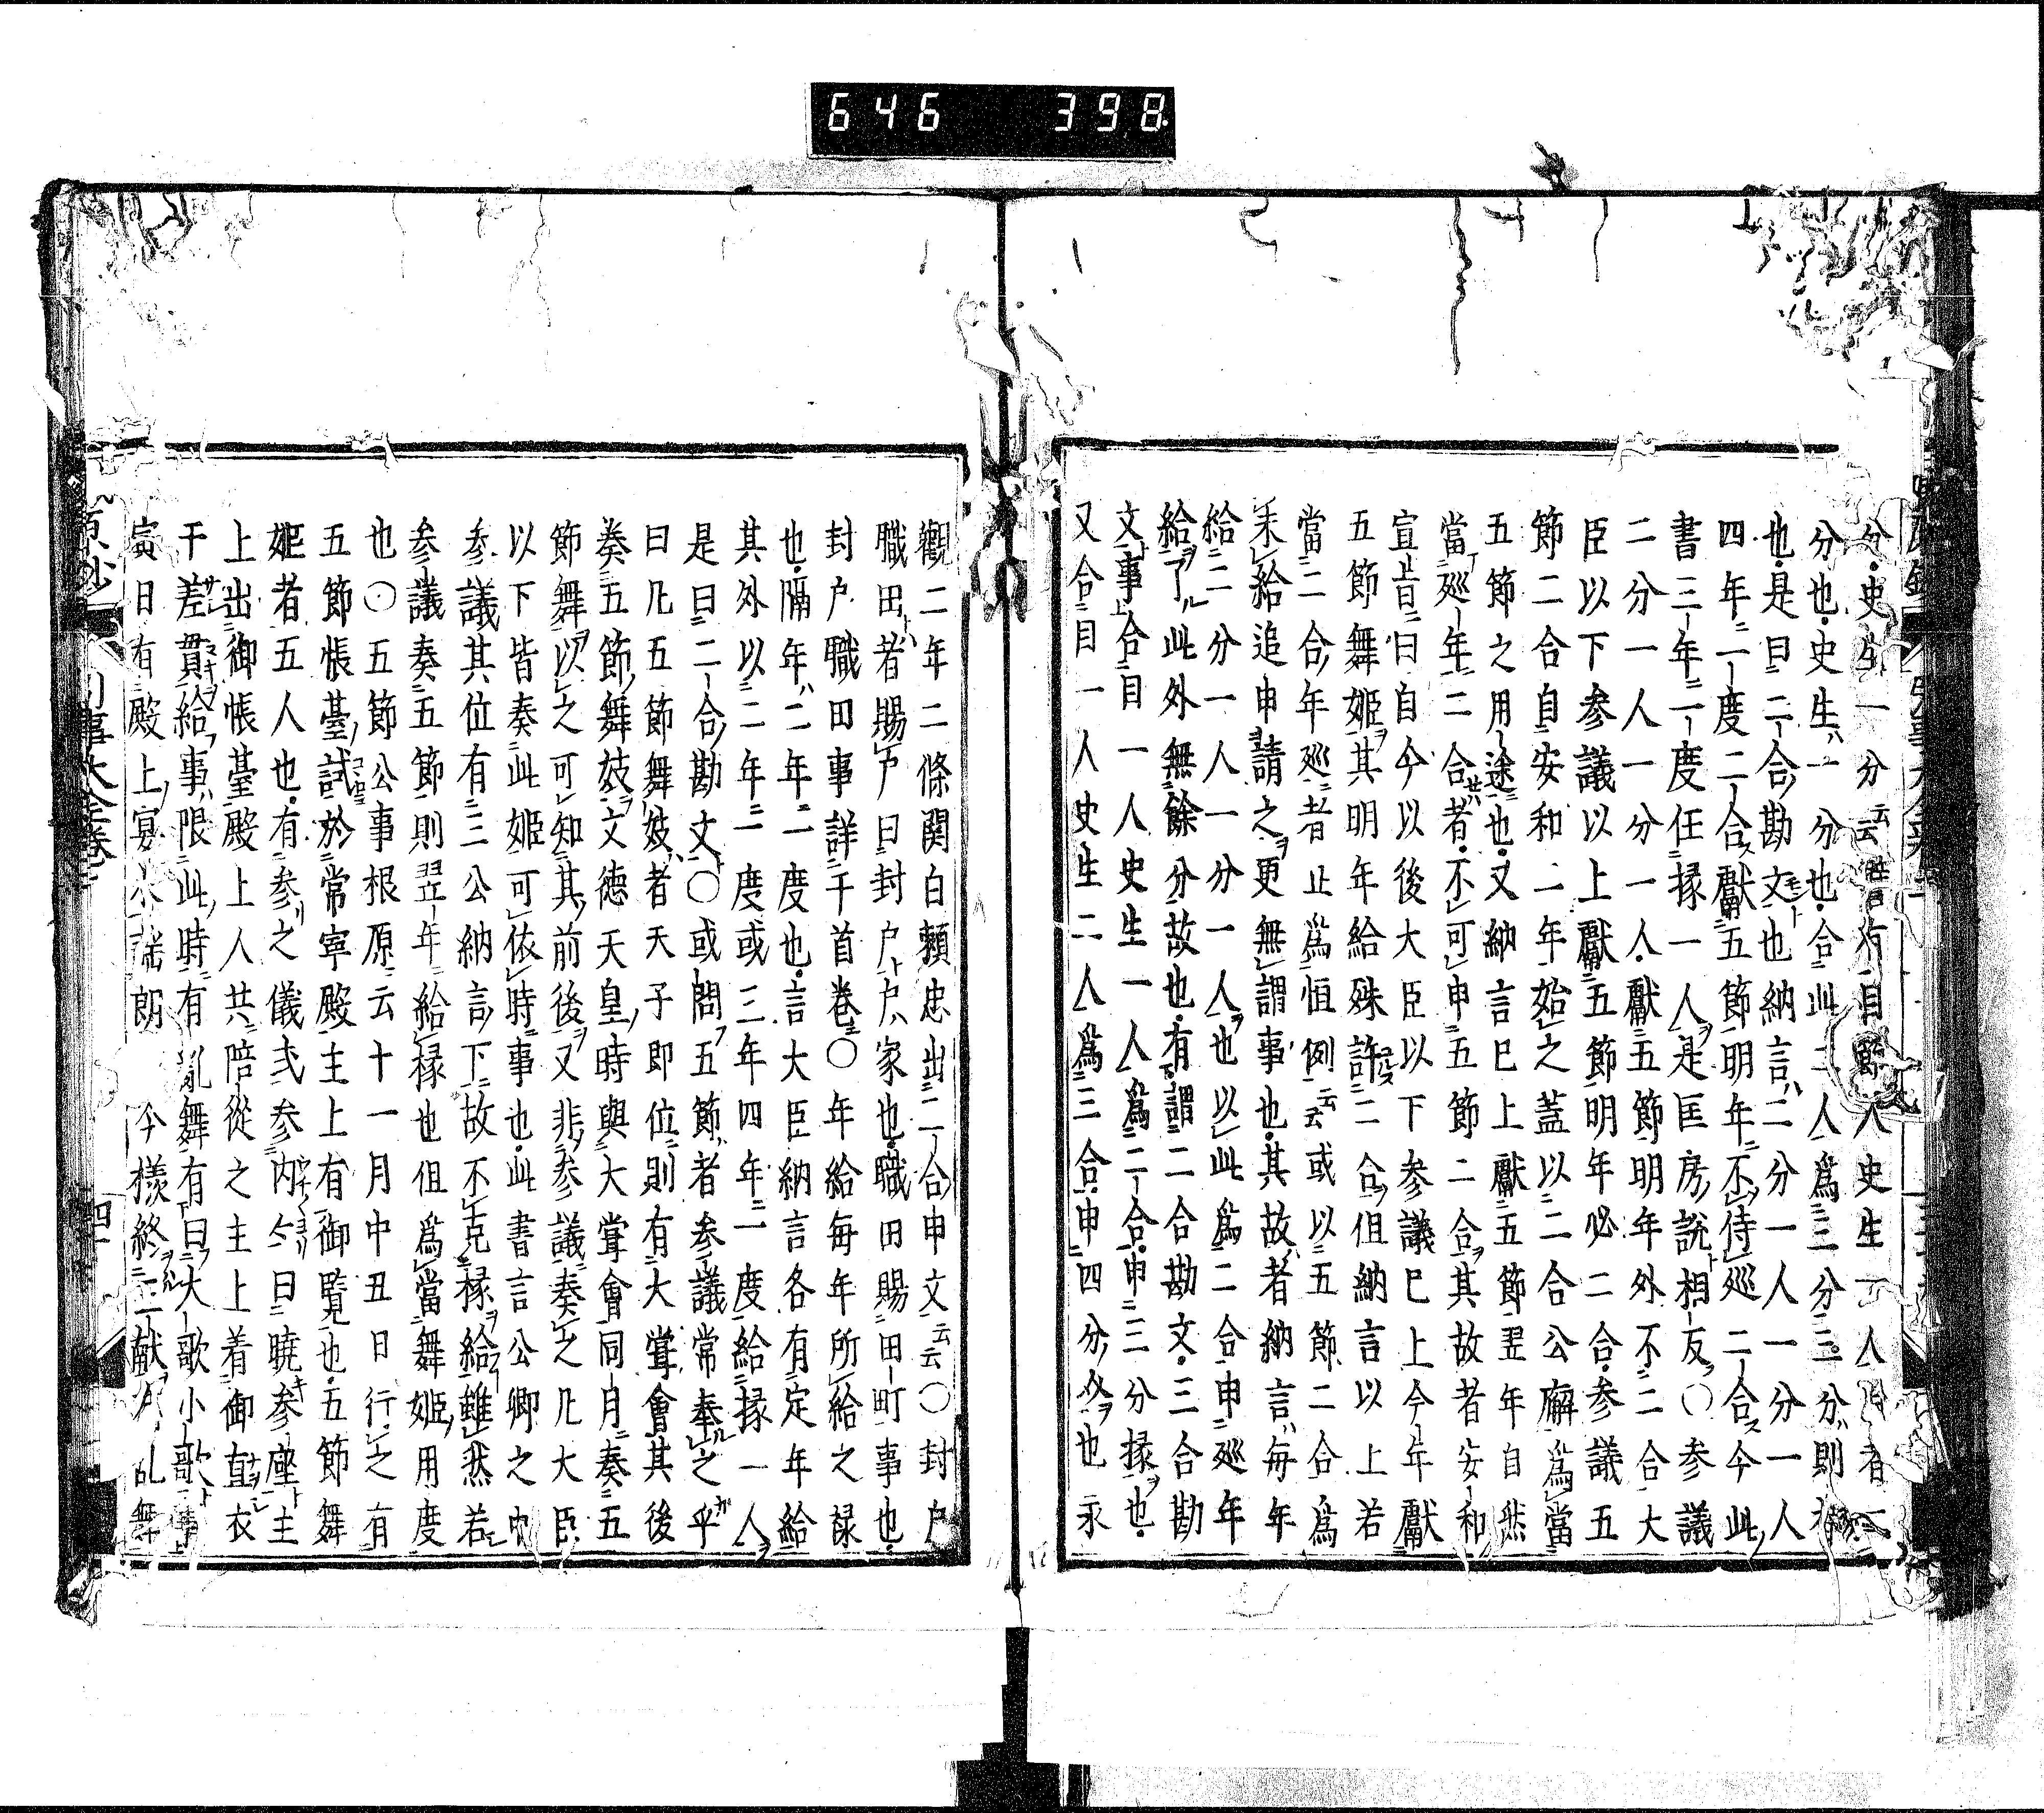 646 398
分史生一分云云有目人史生一人者一
分也史生ハ一分也合此二人爲三分三分則
也是曰二合勘文也納言ハ二分一人一分一人
四年二度二合獻五節明年不侍巡二合今此
書三年二度任掾一人是匡房説相反〇參議
二分一人一分一人獻五節明年外不二合大
臣以下參議以上獻五節明年必二合參議五
節二合自安和二年始之蓋以二合公廨爲當
五節之用途也又納言已上獻五節翌年自然
當巡年二合者不可申五節二合其故者安和
宣旨曰自今以後大臣以下參議已上今年獻
五節舞姬其明年給殊許二合但納言以上若
當二合年巡者止爲恒例云云或以五節二合爲
未給追申請之更無謂事也其故者納言ハ毎年
給二分一人一分一人也以此爲二合申巡年
給了此外無餘分故也有謂二合勘文三合勘
文事合目一人史生一人爲二合申三分掾也
又合目一人史生二人爲三合申四分介也永
觀二年二條関白賴忠出二合申文云云〇封戸
職田者賜戸曰封戸戸ハ家也職田賜田町事也
封戸職田事詳于首卷〇年給毎年所給之禄
也隔年ハ二年二度也言大臣納言各有定年給
其外以二年二度或三年四年二度給掾一人
是曰二合勘文〇或問五節者參議常奉之乎
曰凡五節舞妓者天子即位則有大甞會其後
奏五節舞妓文德天皇時與大甞會同月奏五
節舞以之可知其前後又非參議奏之凡大臣
以下皆奏此姬可依時事也此書言公卿之中
參議其位有三公納言下故不克掾給雖然若
參議奏五節則翌年給掾也但爲當舞姬用度
也〇五節公事根原云十一月中丑日行之有
五節帳臺試於常寧殿主上有御覽也五節舞
姬者五人也有參之儀式參內今日曉參座主
上出御帳臺殿上人共陪從之主上着御直衣
干差貫給事限此時有亂舞有曰大歌小歌事
寅日有殿上宴 朗 今樣終三献 乱舞
四